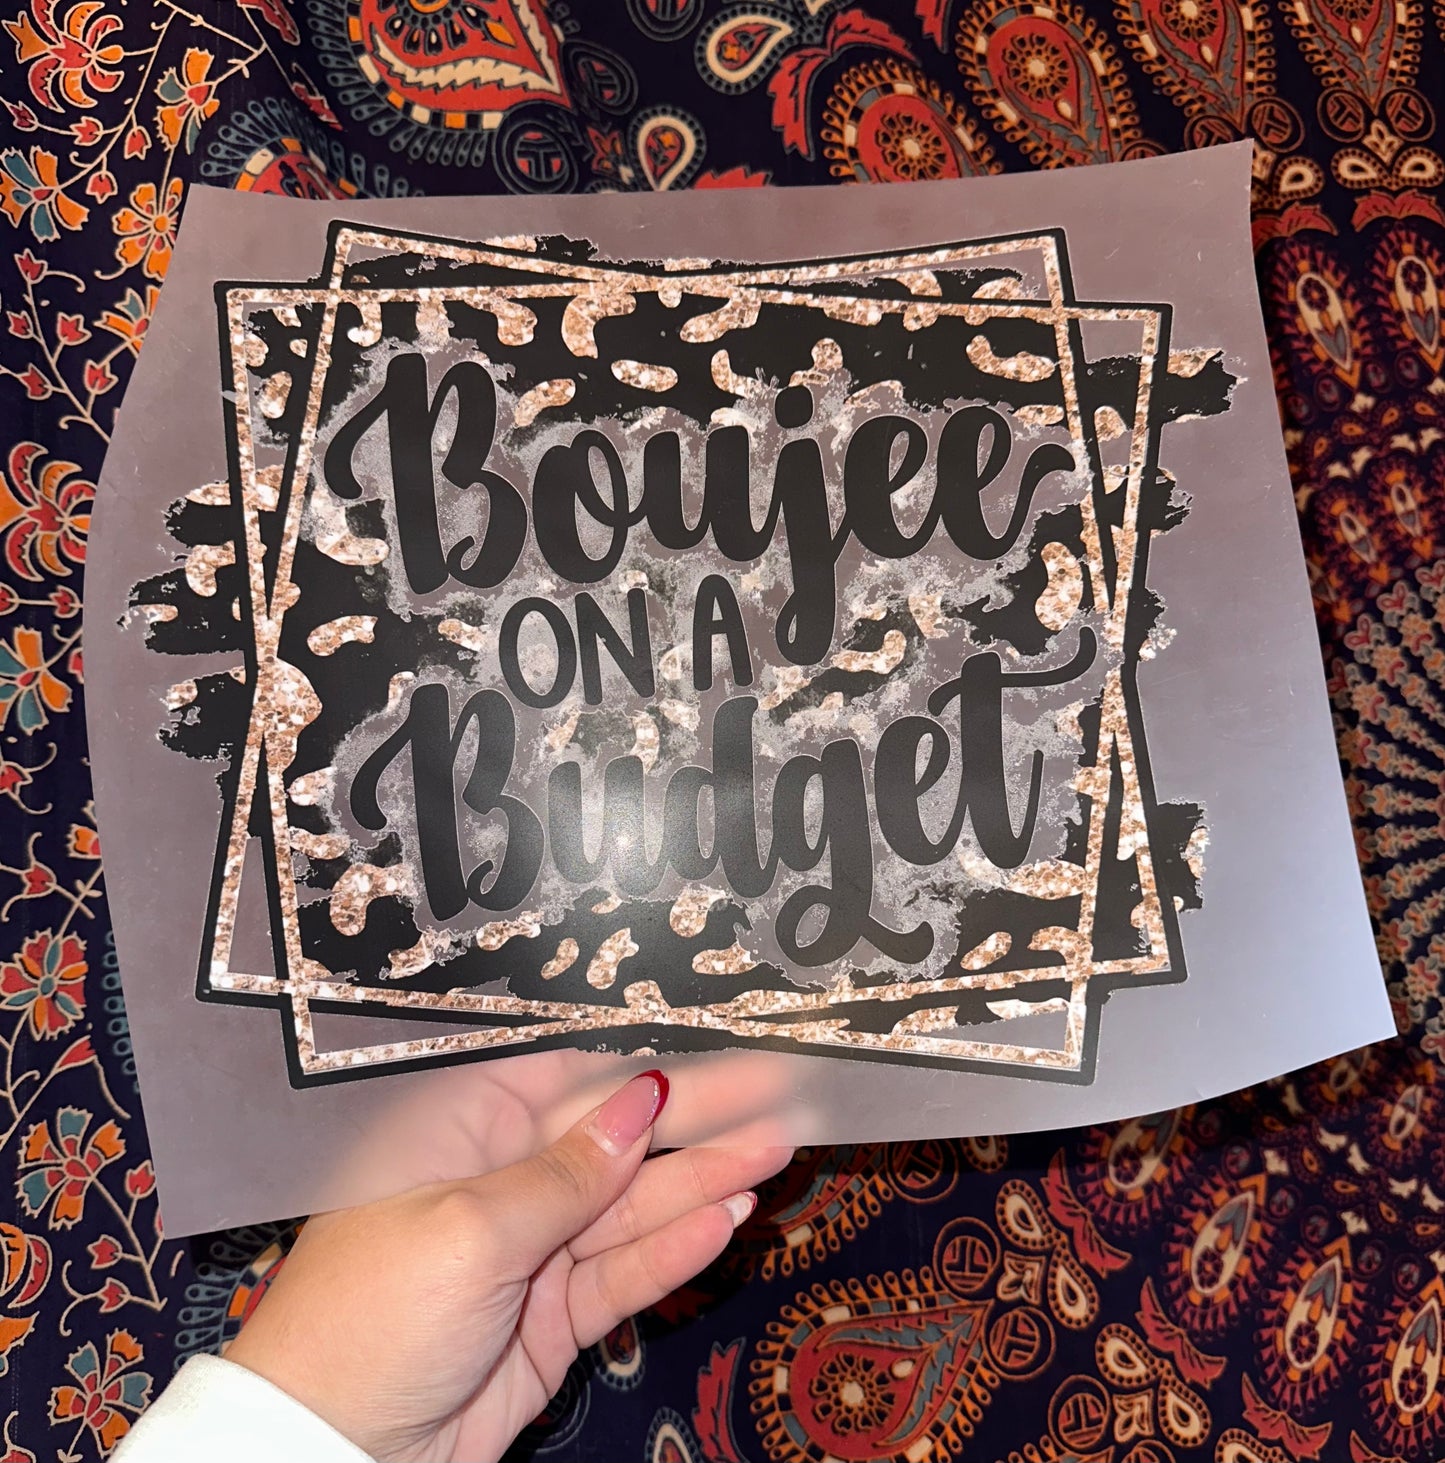 Boujee
ON A
Budget